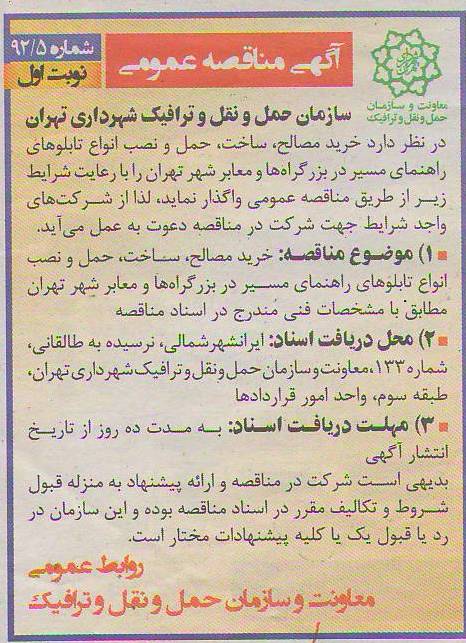 شماره ۹۲/۵
نوبت اول
آگهی مناقصه عمومی
معاونت و سازمان
حمل و نقل و ترافیک
سازمان حمل و نقل و ترافیک شهرداری تهران
در نظر دارد خرید مصالح، ساخت، حمل و نصب انواع تابلوهای
راهنمای مسیر در بزرگراه‌ها و معابر شهر تهران را با رعایت شرایط
زیر از طریق مناقصه عمومی واگذار نماید، لذا از شرکت‌های
واجد شرایط جهت شرکت در مناقصه دعوت به عمل می‌آید.
۱) موضوع مناقصه: خرید مصالح، ساخت، حمل و نصب
انواع تابلوهای راهنمای مسیر در بزرگراه‌ها و معابر شهر تهران
مطابق با مشخصات فنی مندرج در اسناد مناقصه
۲) محل دریافت اسناد: ایرانشهرشمالی، نرسیده به طالقانی،
شماره ۱۳۳، معاونت و سازمان حمل و نقل و ترافیک شهرداری تهران،
طبقه سوم، واحد امور قراردادها
۳) مهلت دریافت اسناد: به مدت ده روز از تاریخ
انتشار آگهی
بدیهی است شرکت در مناقصه و ارائه پیشنهاد به منزله قبول
شروط و تکالیف مقرر در اسناد مناقصه بوده و این سازمان در
رد یا قبول یک یا کلیه پیشنهادات مختار است.
روابط عمومی
معاونت و سازمان حمل و نقل و ترافیک